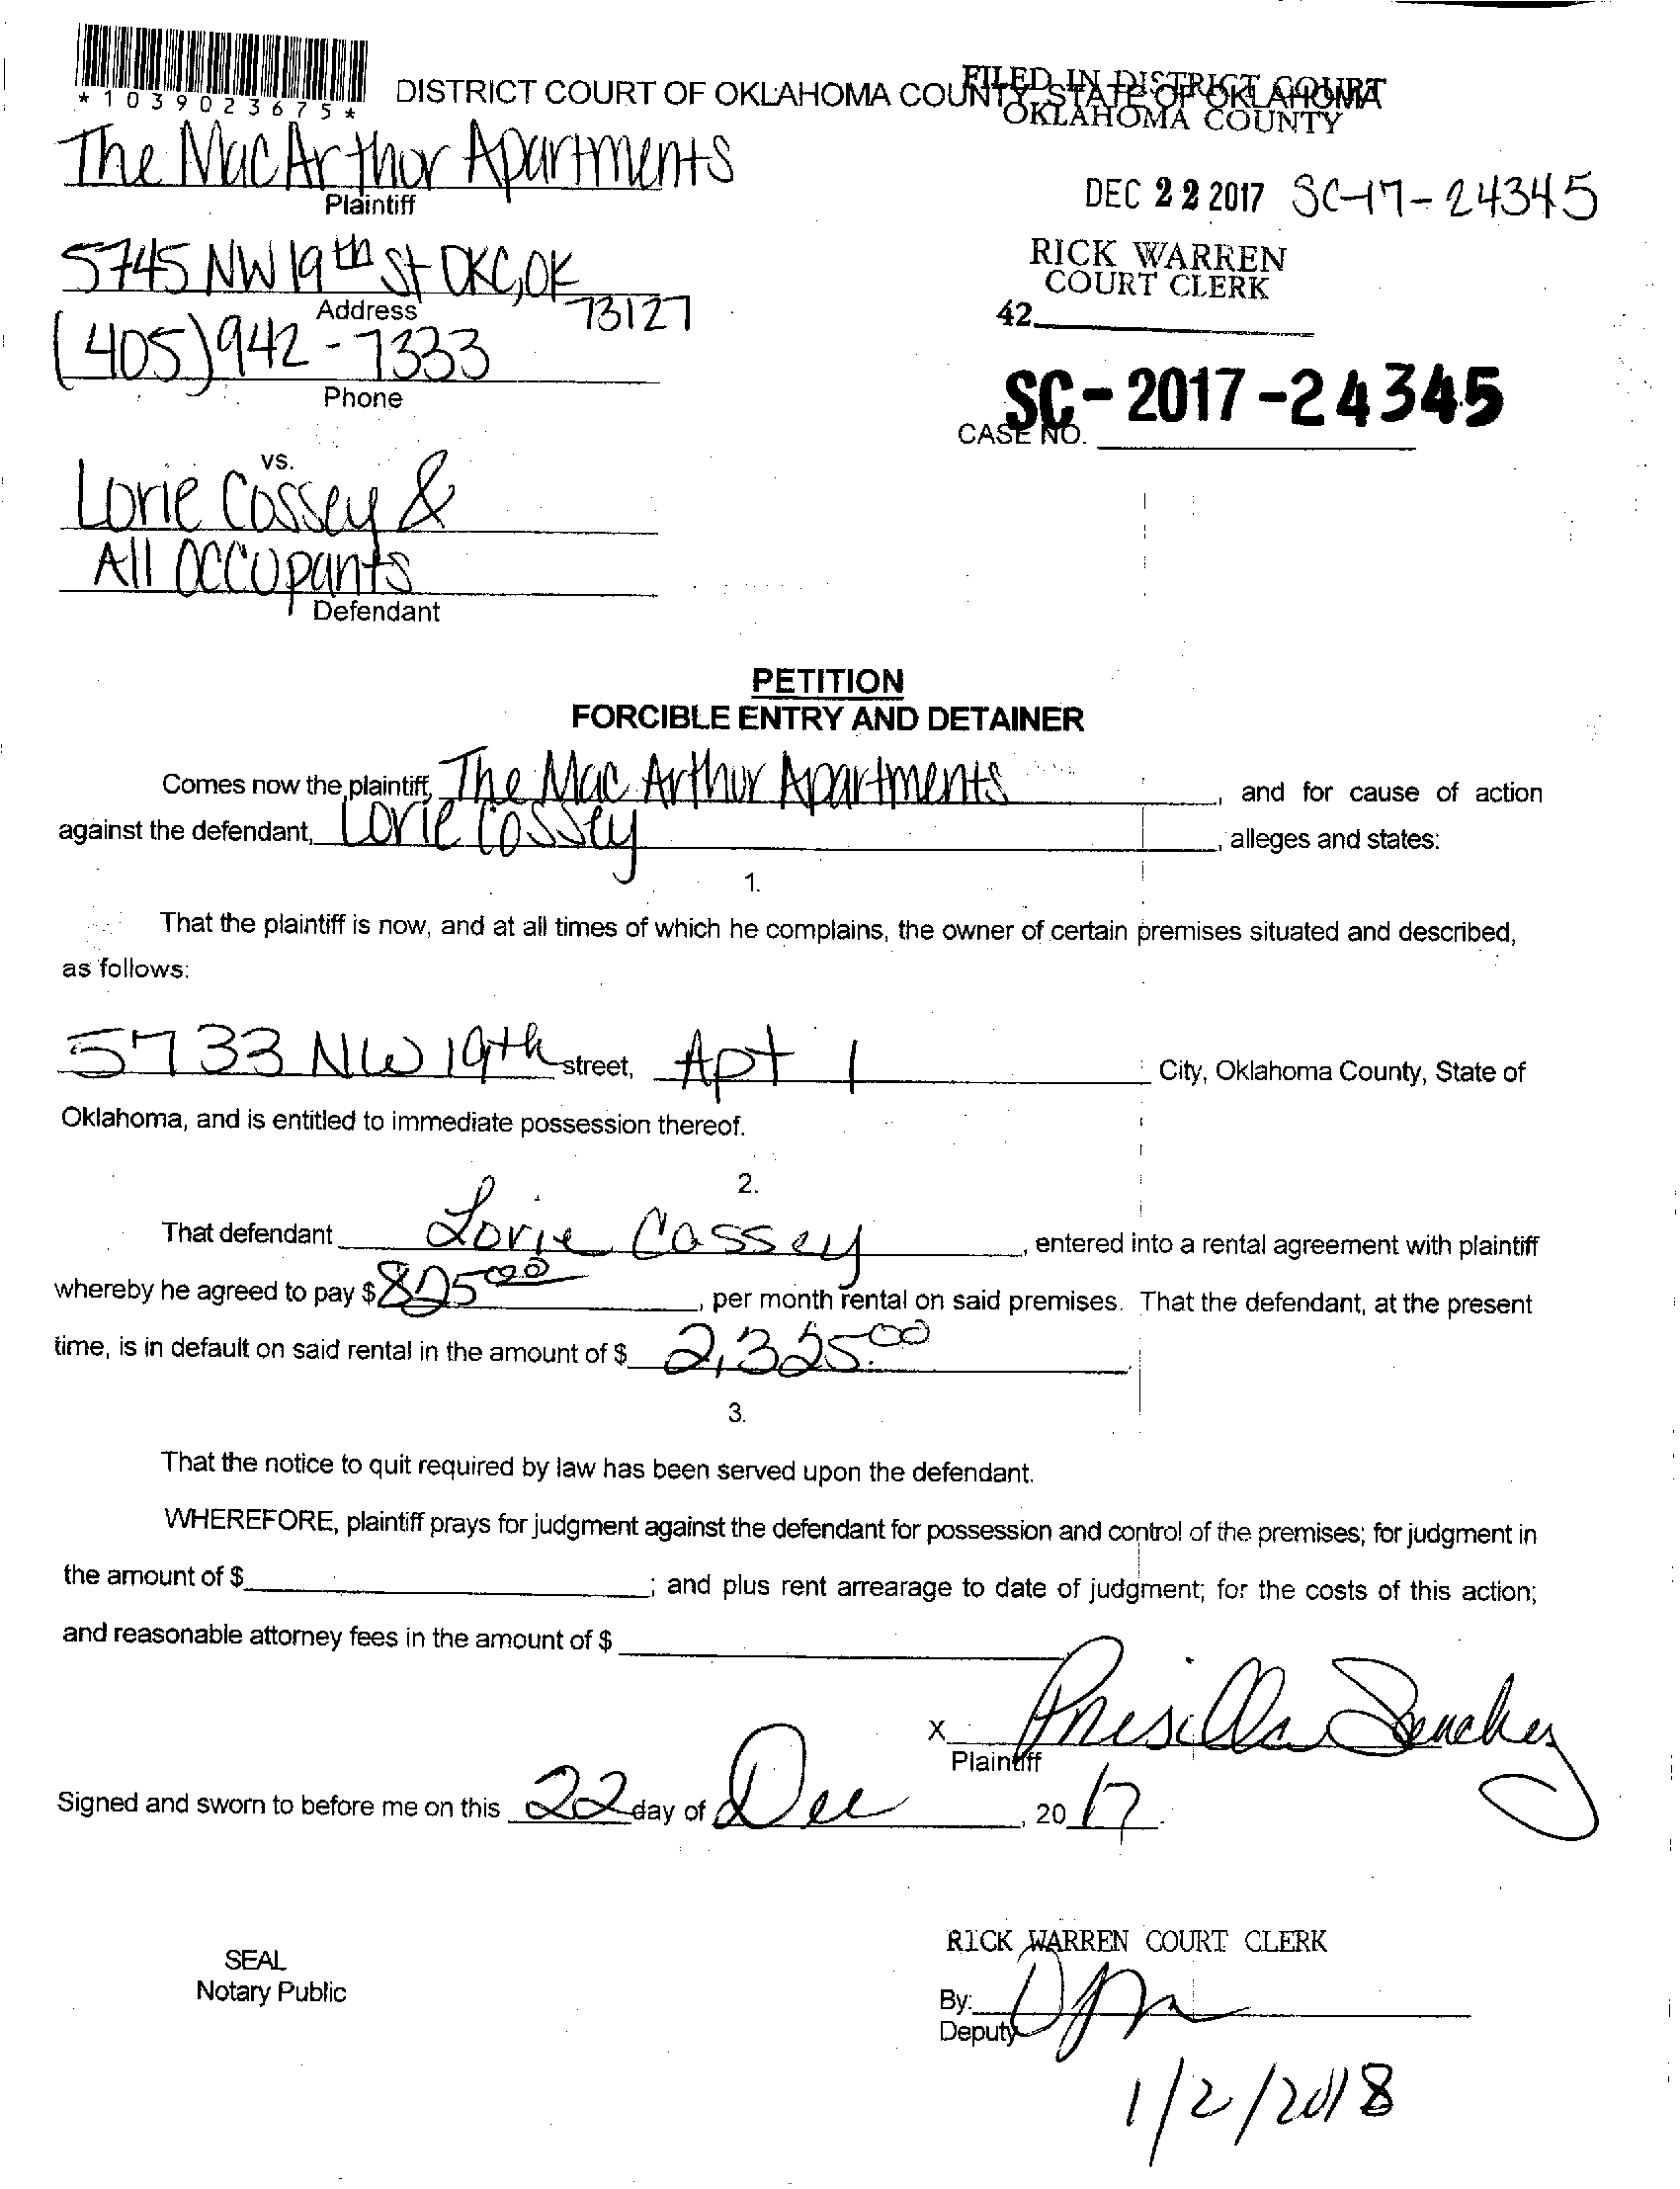 *1039023675*
DISTRICT COURT OF OKLAHOMA COUNTY, STATE OF OKLAHOMA
FILED IN DISTRICT COURT
OKLAHOMA COUNTY
The MacArthur Apartments
Plaintiff
DEC 22 2017 SC-17-24345
5745 NW 19th St OKC, OK
73127
Address
RICK WARREN
COURT CLERK
42
(405) 942-7333
Phone
SC-2017-24345
CASE NO.
vs.
Lorie Cossey &
All Occupants
Defendant
PETITION
FORCIBLE ENTRY AND DETAINER
Comes now the plaintiff, The Mac Arthur Apartments, and for cause of action
against the defendant, Lorie Cossey, alleges and states:
1.
That the plaintiff is now, and at all times of which he complains, the owner of certain premises situated and described,
as follows:
5733 NW 19th street, Apt 1 City, Oklahoma County, State of
Oklahoma, and is entitled to immediate possession thereof.
2.
That defendant Lorie Cossey, entered into a rental agreement with plaintiff
whereby he agreed to pay $ 825.00, per month rental on said premises. That the defendant, at the present
time, is in default on said rental in the amount of $ 2,325.00.
3.
That the notice to quit required by law has been served upon the defendant.
WHEREFORE, plaintiff prays for judgment against the defendant for possession and control of the premises; for judgment in
the amount of $ ; and plus rent arrearage to date of judgment; for the costs of this action;
and reasonable attorney fees in the amount of $
X Prisilla Sanchez
Plaintiff
Signed and sworn to before me on this 22 day of Dec, 2017.
SEAL
Notary Public
RICK WARREN COURT CLERK
By:
Deputy
1/2/2018